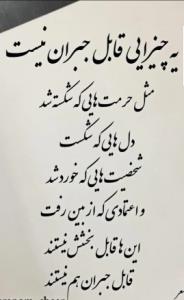 یه چیزایی قابل جبران نیست
مثل حرمت‌هایی که شکسته شد
دل‌هایی که شکست
شخصیت‌هایی که خورد شد
و اعتمادی که از بین رفت
این‌ها قابل بخشش نیستند
قابل جبران هم نیستند